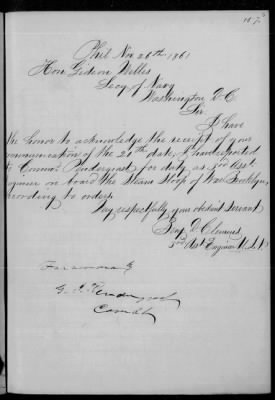 157
Phil Nov 26th 1861
Hon. Gideon Welles
Secy of Navy
Washington D.C.
Sir
I have
the honor to acknowledge the receipt of your
communication of the 20th date, I have reported
to Commo. Pendergrast for duty as 3rd Asst
gineer on board the Steam Sloop of War Brooklyn,
ccording to orders
Very respectfully your obedient Servant
Benj. D. Clemens
3rd Ast Engineer U.S.N.
Forwarded
G. J. Pendergrast
Comdt